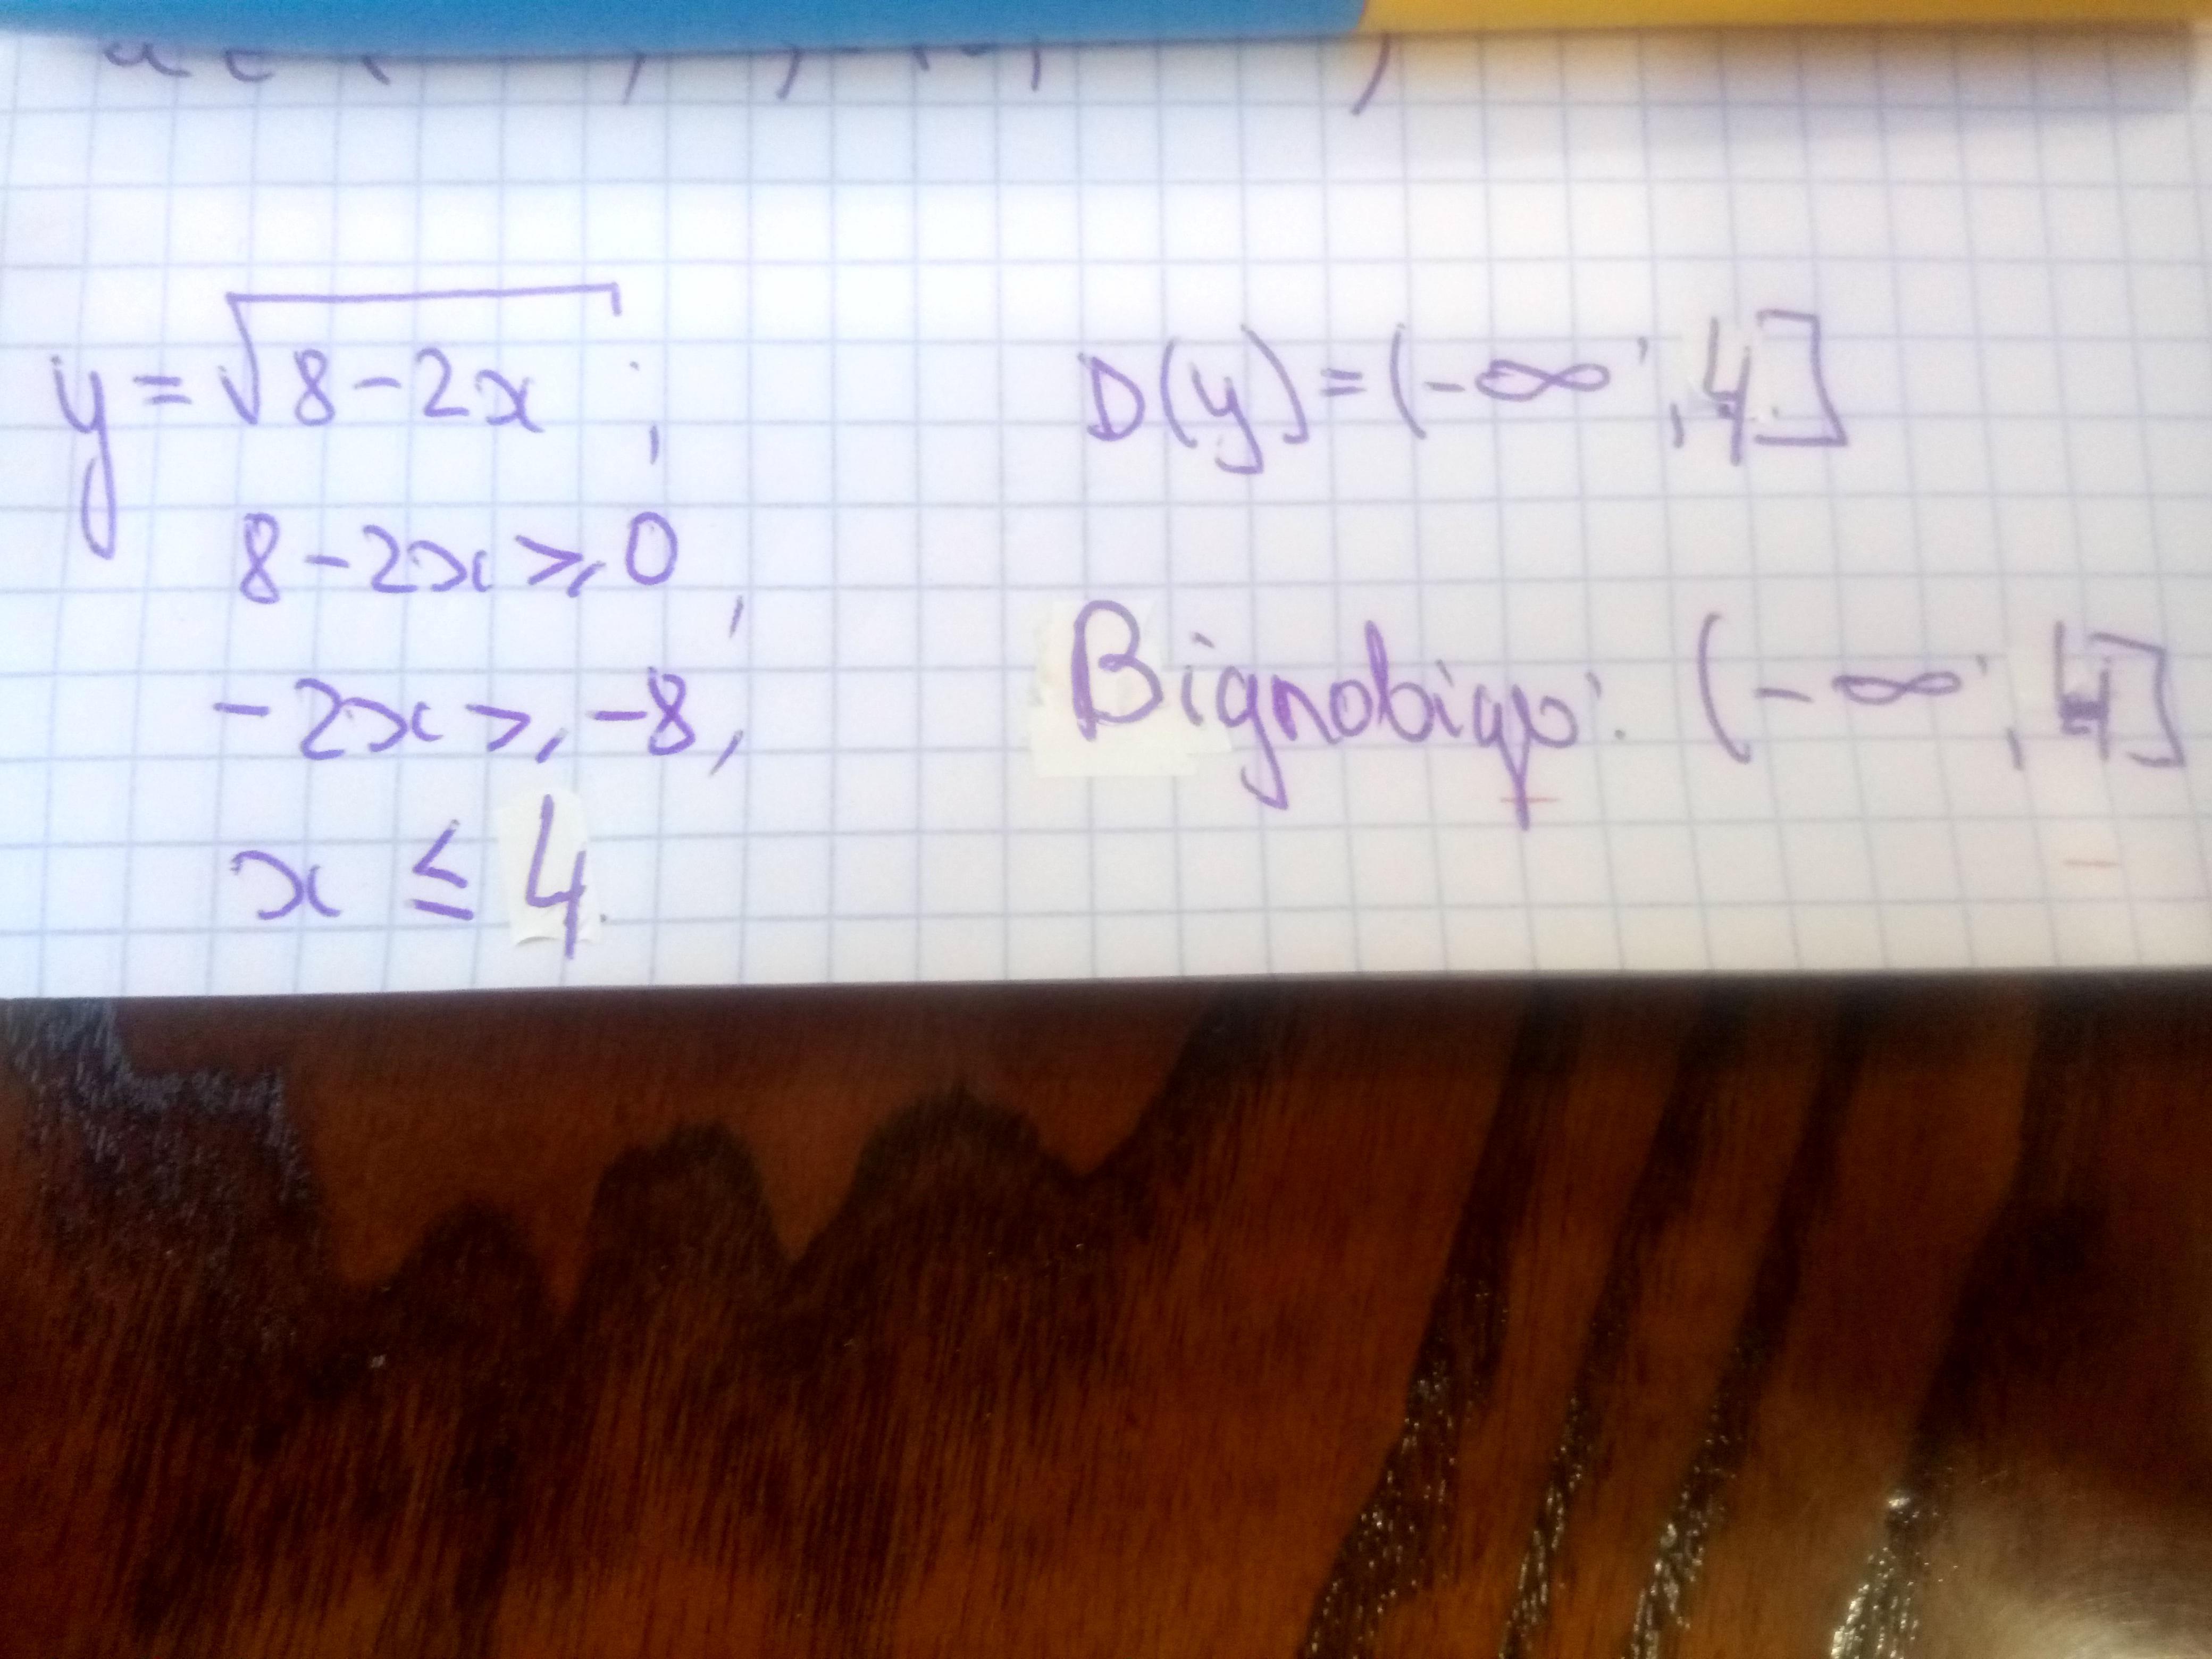 y = √8-2x ;
8-2x ≥ 0,
-2x ≥ -8,
x ≤ 4.
D(y) = (-∞; 4]
Відповідь: (-∞; 4]